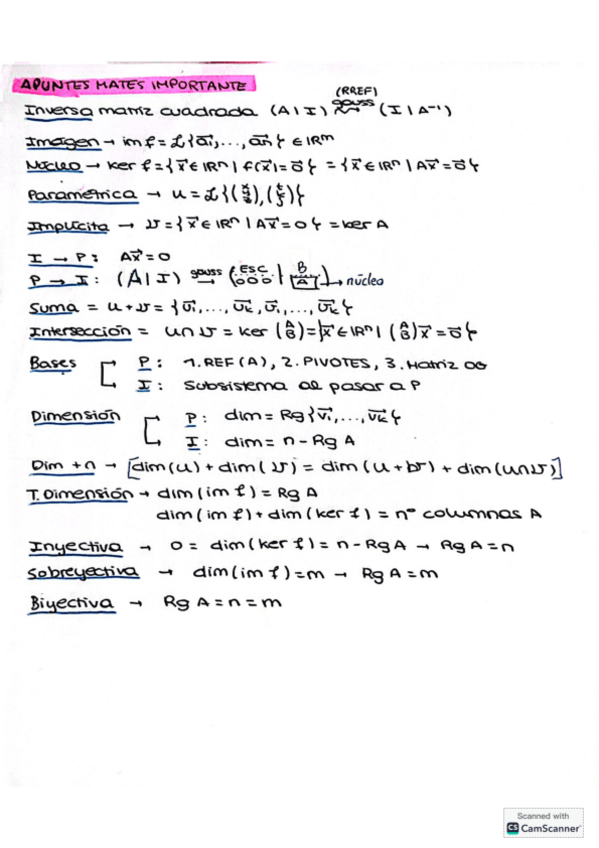 APUNTES MATES IMPORTANTE
Inversa matriz cuadrada (A | I) gauss (RREF) → (I | A⁻¹)
Imagen → im f = L{a⃗₁, ..., a⃗ₙ} ∈ IRᵐ
Núcleo → ker f = {x⃗ ∈ IRⁿ | f(x⃗) = o⃗} = {x⃗ ∈ IRⁿ | Ax⃗ = o⃗}
Paramétrica → u = L{( ), ( )}
Implícita → v = {x⃗ ∈ IRⁿ | Ax⃗ = 0} = ker A
I → P: Ax⃗ = 0
P → I: (A | I) gauss → (ESC 000 | B A) → núcleo
Suma = u + v = {u⃗₁, ..., u⃗ₖ, v⃗₁, ..., v⃗ₖ}
Intersección = u ∩ v = ker (A B) = {x⃗ ∈ IRⁿ | (A B) x⃗ = o⃗}
Bases P: 1. REF (A), 2. PIVOTES, 3. Matriz OG
I: Subsistema al pasar a P
Dimensión P: dim = Rg {v⃗₁, ..., v⃗ₖ}
I: dim = n - Rg A
Dim + n → [dim (u) + dim (v) = dim (u + v) + dim (u ∩ v)]
T. Dimensión → dim (im f) = Rg A
dim (im f) + dim (ker f) = nº columnas A
Inyectiva → 0 = dim (ker f) = n - Rg A → Rg A = n
Sobreyectiva → dim (im f) = m → Rg A = m
Biyectiva → Rg A = n = m
Scanned with
CS CamScanner